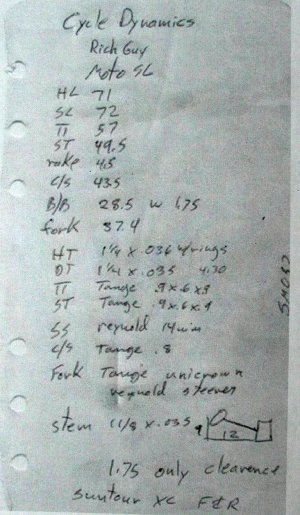 Cycle Dynamics
Rich Guy
Moto SL
HL 71
SL 72
TT 57
ST 49.5
rake 4.5
C/S 43.5
B/B 28.5 w 1.75
fork 37.4
HT 1 1/4 x .036 w/rings
DT 1 1/4 x .035 4130
TT Tange .9x.6x.9
ST Tange .9x.6x.9
SS reynold 14mm
C/S Tange .8
Fork Tange unicrown
reynold steerer
stem 1 1/8 x .035
12
1.75 only clearence
suntour XC F&R